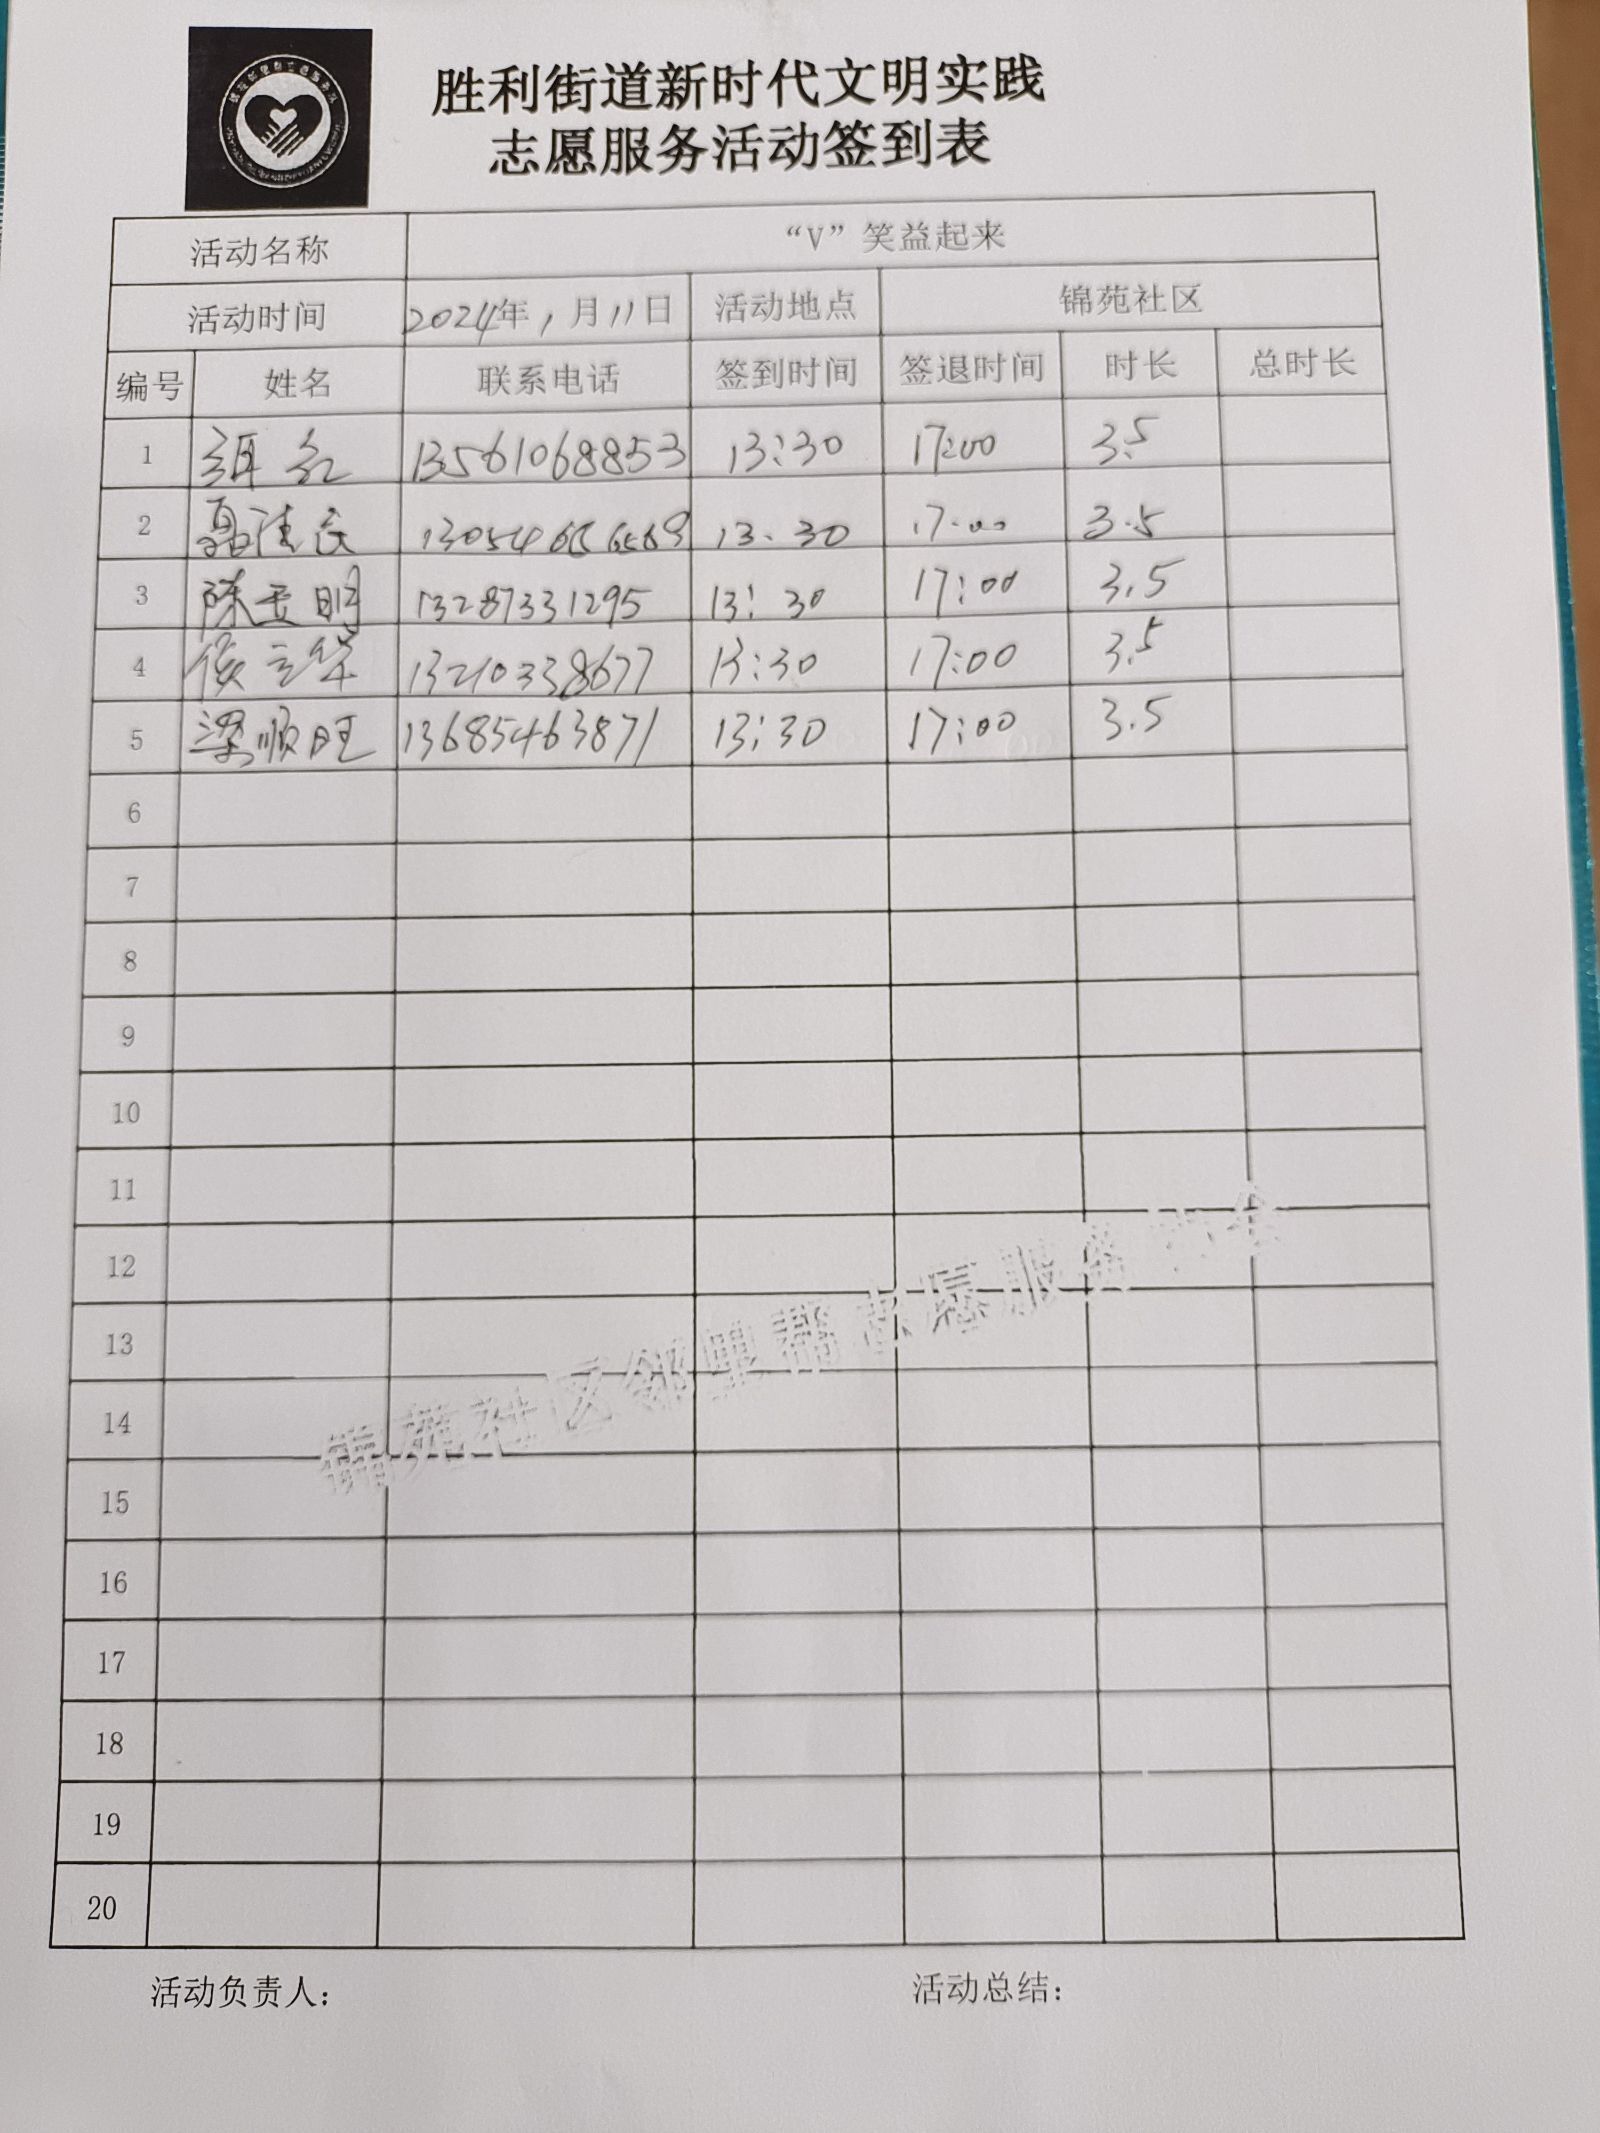 胜利街道新时代文明实践
志愿服务活动签到表
活动名称 “V”笑益起来
活动时间 2024年1月11日 活动地点 锦苑社区
编号 姓名 联系电话 签到时间 签退时间 时长 总时长
1 13561068853 13:30 17:00 3.5
2 13:30 17:00 3.5
3 陈玉明 13287331295 13:30 17:00 3.5
4 侯立华 13210338677 13:30 17:00 3.5
5 梁顺旺 13685463871 13:30 17:00 3.5
6
7
8
9
10
11
12
13
14
15
16
17
18
19
20
锦苑社区邻里帮志愿服务协会
活动负责人： 活动总结：